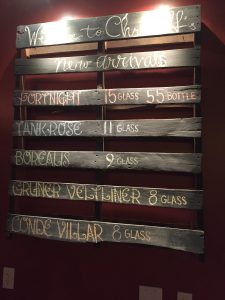 Welcome to
New Arrivals
FORTNIGHT 15 GLASS 55 BOTTLE
TANK ROSE 11 GLASS
BOREALIS 9 GLASS
GRUNER VELTLINER 8 GLASS
CONDE VILLAR 8 GLASS